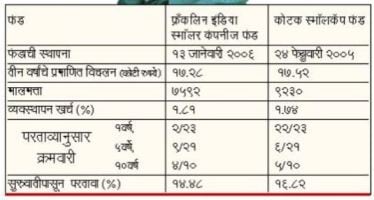 फंड फ्रँकलिन इंडिया स्मॉलर कंपनीज फंड कोटक स्मॉलकॅप फंड
फंडाची स्थापना १३ जानेवारी २००६ २४ फेब्रुवारी २००५
तीन वर्षांचे प्रमाणित विचलन (कोटी रुपये) १७.२८ १७.५२
मालमत्ता ७५९२ ९२३०
व्यवस्थापन खर्च (%) १.८१ १.७४
परताव्यानुसार क्रमवारी
१ वर्ष, २/२३ २२/२३
५ वर्षे, ९/२१ ६/२१
१० वर्षे ४/१० ५/१०
सुरुवातीपासून परतावा (%) १४.४८ १६.८२